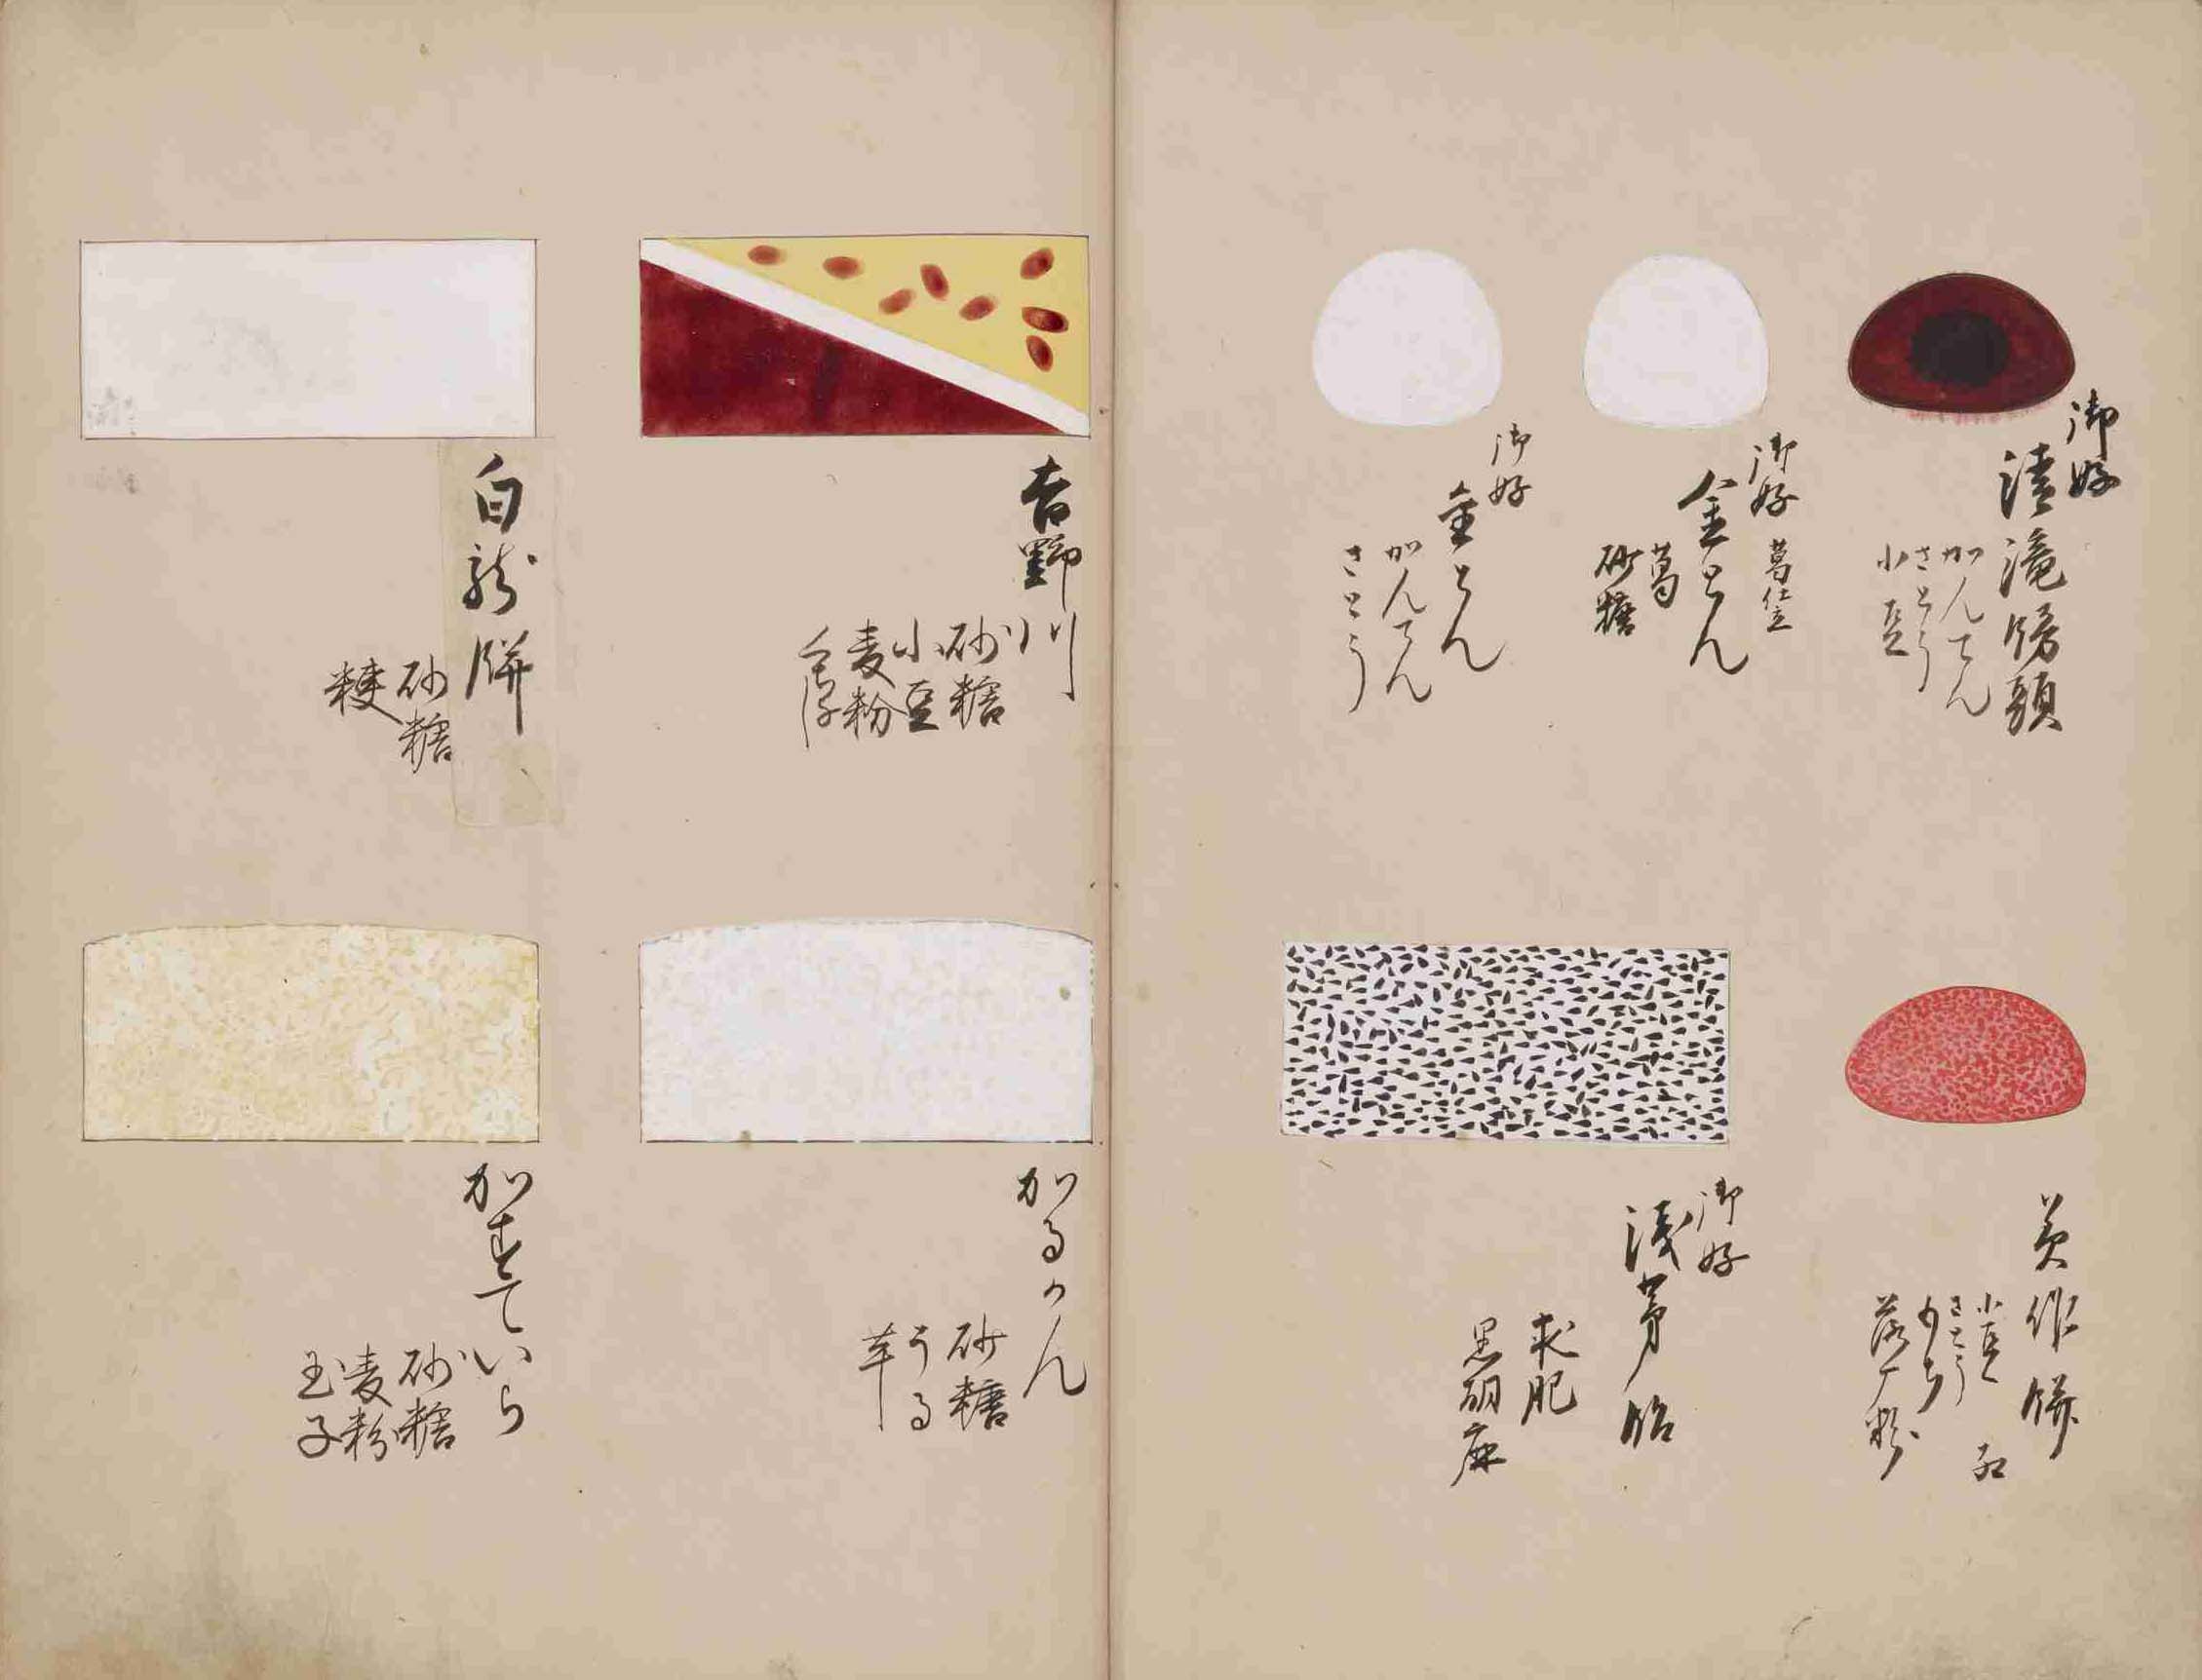 御好
清滝饅頭
かんてん
さとう
小豆
御好 葛仕立
金とん
葛
砂糖
御好
金とん
かんてん
さとう
美作餅
小豆 紅
さとう
もち
落雁粉
御好
浅茅飴
求肥
黒胡麻
吉野川
砂糖
小豆
麦粉
白龍餅
砂糖
粳
かるかん
砂糖
うる
芋
かすていら
砂糖
麦粉
玉子